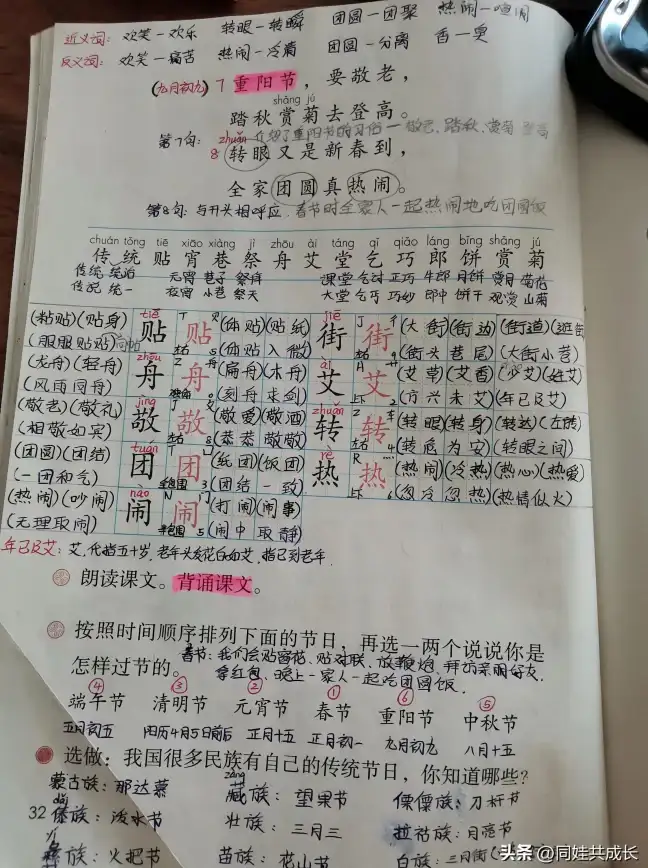 近义词: 欢笑—欢乐 转眼—转瞬 团圆—团聚 热闹—喧闹
反义词: 欢笑—痛苦 热闹—冷清 团圆—分离 香—臭
(九月初九) 7 重阳节，要敬老，
shǎng jú
踏秋赏菊去登高。
第7句: 介绍了重阳节的习俗—敬老、踏秋、赏菊、登高
zhuǎn
8 转眼又是新春到，
全家团圆真热闹。
第8句: 与开头相呼应，春节时全家人一起热闹地吃团圆饭
chuán tǒng tiē xiāo xiàng jì zhōu ài táng qǐ qiǎo láng bǐng shǎng jú
传 统 贴 宵 巷 祭 舟 艾 堂 乞 巧 郎 饼 赏 菊
传统 统治 元宵 巷子 祭拜 课堂 乞讨 正巧 牛郎 月饼 赏月 菊花
传说 统一 夜宵 小巷 祭天 大堂 乞丐 巧妙 郎中 饼干 观赏 山菊
(粘贴)(贴身) tiē 贴 贴 (体贴)(贴纸) jiē 街 街 (大街)(街边)(街道)(逛街)
(服服贴贴) 左右 5 (体贴入微) (街头巷尾)(大街小巷)
(龙舟)(轻舟) zhōu 舟 舟 (扁舟)(木舟) ài 艾 艾 (艾草)(艾香)(少艾)(姓艾)
(风雨同舟) (刻舟求剑) 上下 2 (方兴未艾)(年已及艾)
(敬老)(敬礼) jìng 敬 敬 (敬爱)(敬酒) zhuǎn 转 转 (转眼)(转身)(转达)(左转)
(相敬如宾) 左右 8 (恭恭敬敬) 左右 4 (转危为安)(转眼之间)
(团圆)(团结) tuán 团 团 (纸团)(饭团) rè 热 热 (热闹)(冷热)(热心)(热爱)
(一团和气) 全包围 3 (团结一致) 上下 6 (忽冷忽热)(热情似火)
(热闹)(吵闹) nào 闹 闹 (打闹)(闹事)
(无理取闹) 半包围 5 (闹中取静)
年已及艾: 艾，代指五十岁，老年头发花白如艾，指已到老年.
朗读课文。背诵课文。
按照时间顺序排列下面的节日，再选一两个说说你是
怎样过节的。
春节: 我们会贴窗花、贴对联、放鞭炮、拜访亲朋好友、
拿红包、晚上一家人一起吃团圆饭.
④ ③ ② ① ⑥ ⑤
端午节 清明节 元宵节 春节 重阳节 中秋节
五月初五 阳历4月5日前后 正月十五 正月初一 九月初九 八月十五
选做: 我国很多民族有自己的传统节日，你知道哪些?
蒙古族: 那达慕 zàng 藏族: 望果节 傈僳族: 刀杆节
32 dǎi 傣族: 泼水节 壮族: 三月三 拉祜族: 月亮节
yí 彝族: 火把节 苗族: 花山节 白族: 三月街
头条 @同娃共成长